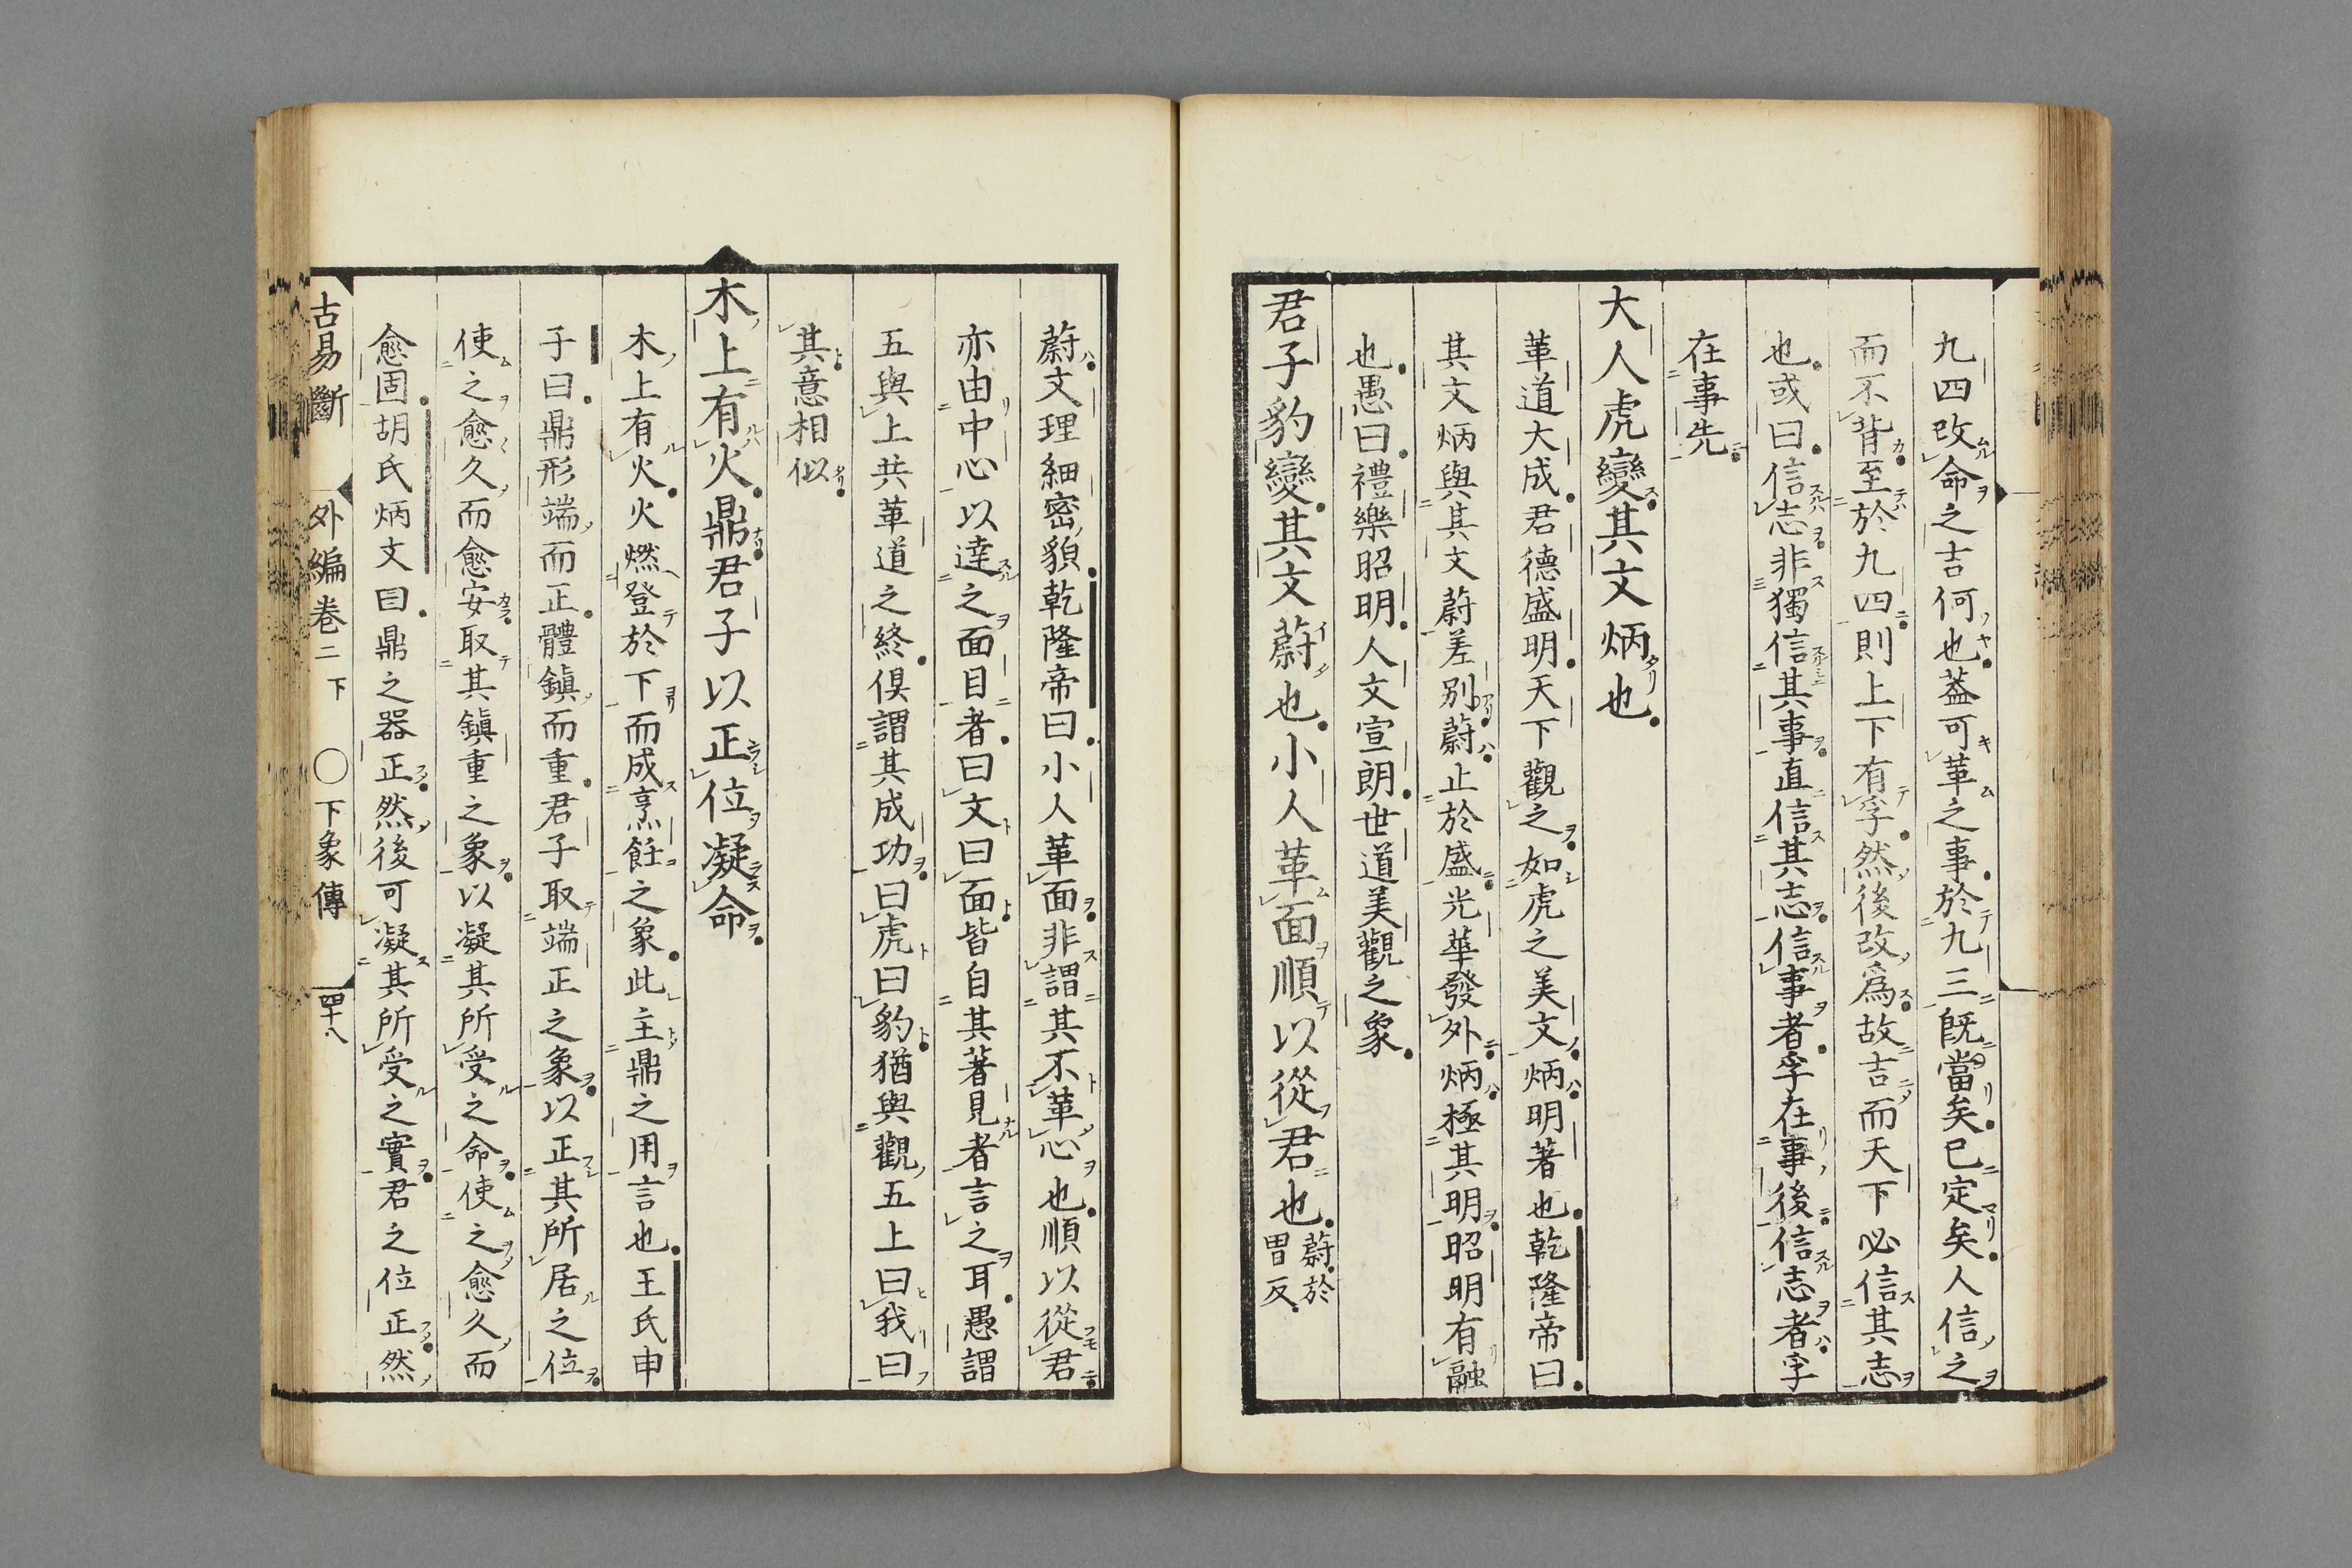 九四改命之吉何也葢可革之事於九三既當矣已定矣人信之
而不背至於九四則上下有孚然後改爲故吉而天下必信其志
也或曰信志非獨信其事直信其志信事者孚在事後信志者孚
在事先
大人虎變其文炳也
革道大成君德盛明天下觀之如虎之美文炳明著也乾隆帝曰
其文炳與其文蔚差別蔚止於盛光華發外炳極其明昭明有融
也愚曰禮樂昭明人文宣朗世道美觀之象
君子豹變其文蔚也小人革面順以從君也蔚於
胃反
蔚文理細密貌乾隆帝曰小人革面非謂其不革心也順以從君
亦由中心以達之面目者曰文曰面皆自其著見者言之耳愚謂
五與上共革道之終俱謂其成功曰虎曰豹猶與觀五上曰我曰
其意相似
木上有火鼎君子以正位凝命
木上有火火燃登於下而成烹飪之象此主鼎之用言也王氏申
子曰鼎形端而正體鎭而重君子取端正之象以正其所居之位
使之愈久而愈安取其鎭重之象以凝其所受之命使之愈久而
愈固胡氏炳文曰鼎之器正然後可凝其所受之實君之位正然
古易斷 外編卷二下 ○下象傳 四十八